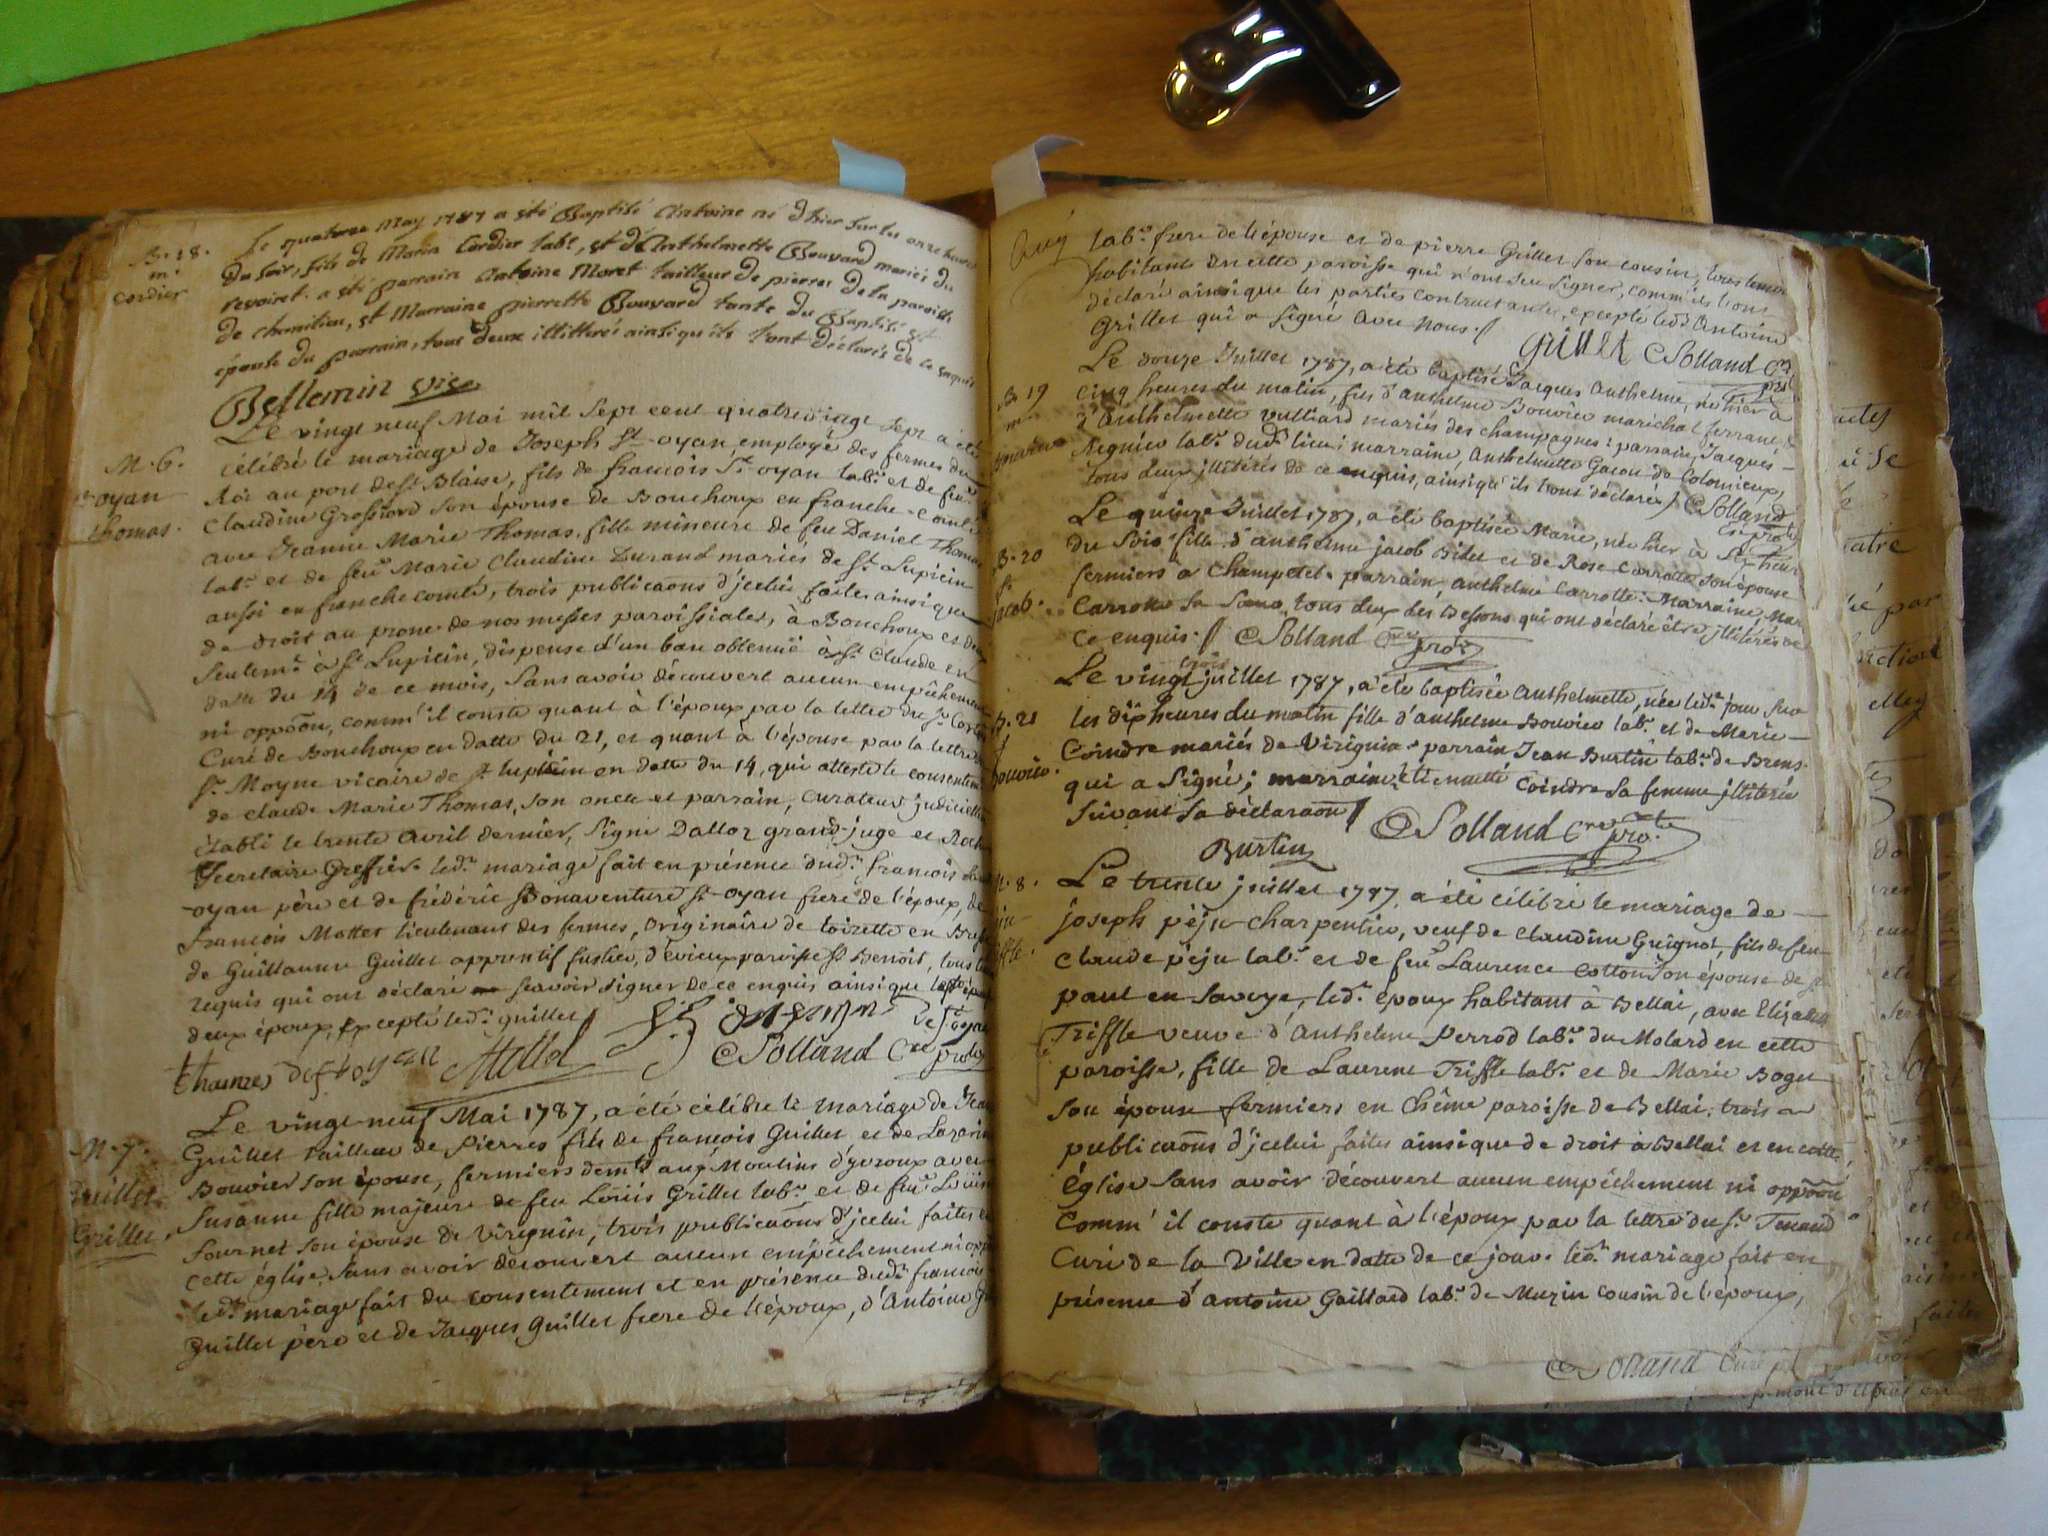 B. 18.
m.
Cordier
Le quatorze May 1787 a été Baptisé Antoine né d'hier sur les onze heures
du soir, fils de Marin Cordier labr, et d'Anthelmette Bouvard mariés du
revoiret. a été parrain Antoine Moret tailleur de pierres de la paroisse
de chemilieu, et Marraine pierrette Bouvard tante du Baptisé et
épouse du parrain, tous deux illitterés ainsi qu'ils l'ont déclarés de ce requis
Bellemin vic.
M. 6.
St oyan
thomas.
Le vingt neuf Mai mil sept cent quatre vingt sept a été
célébré le mariage de Joseph St-oyan employé des fermes du
Roi au port de St Blaise, fils de francois St-oyan labr. et de feue
Claudine Grossiord son épouse de Bouchoux en franche-comté
avec Jeanne Marie Thomas, fille mineure de feu Daniel Thomas
labr. et de feue Marie Claudine Durand mariés de St. Lupicin
aussi en franche comté, trois publicaons d'jcelui faites ainsi que
de droit au prone de nos messes paroissiales, à Bouchoux et deux
seulemt à St Lupicin, dispense d'un ban obtenue à St. Claude en
datte du 14 de ce mois, sans avoir découvert aucun empêchement
ni oppõon, comm' il conste quant à l'époux par la lettre du Sr
Curé de Bouchoux en datte du 21, et quant à l'épouse par la lettre
Sr. Moyne vicaire de St lupicin en datte du 14, qui atteste le consentemt
de claude Marie Thomas, son oncle et parrain, curateur judiciellemt
établi le trente avril dernier, signé Dalloz grand-juge et Roch
Secretaire Greffier. ledt mariage fait en présence dudt. francois St
oyan père et de frédéric Bonaventure St-oyan frere de l'époux, de
francois Mottet lieutenant des fermes, originaire de toirette en
de Guillaume Guillet apprentif fustier, d'évieux paroisse St Benoit, tous
requis qui ont déclaré scavoir signer de ce enquis ainsi que
deux époux, Excepté ledt. guillet
thaumas de St oyan Mottet CSolland Cré proto
M. 7.
Guillet.
Grillet.
Le vingt-neuf Mai 1787, a été célébré le mariage de Jean
Guillet tailleur de Pierres fils de francois Guillet et de
Bouvier son épouse, fermiers demts aux Moulins d'yvroux avec
Susanne fille majeure de feu Loüis Grillet labr. et de feue Louise
fournet son épouse de Virignin, trois publicaons d'jcelui faites en
cette église, sans avoir découvert aucun empêchement ni oppõon
ledt. mariage fait du consentement et en présence dudt. francois
guillet père et de Jacques guillet frere de l'époux, d'Antoine
labr. frere de l'épouse et de pierre Grillet son cousin, tous temoins
habitants en cette paroisse qui n'ont scu signer, comm' ils l'ont
déclaré ainsi que les parties contractantes, excepté ledt Antoine
Grillet qui a signé avec nous./
Grillet CSolland Cré
B 19
m.
bouvier
Le douze Juillet 1787, a été baptisé Jacques Anthelme, né hier à
cinq heures du matin, fils d'anthelme Bouvier maréchal ferrant et
d'Anthelmette Vulliard mariés des champagnes: parrain, Jacques
Regnier labr. dudt lieu; marraine, Anthelmette Gacon de Colomieux,
tous deux jllitérés de ce enquis, ainsi qu'ils l'ont déclaré./ CSolland
Cré pro.
B. 20
f.
jacob.
Le quinze Juillet 1787, a été baptisée Marie, née hier à Sept heures
du Soir fille d'anthelme jacob Bilet et de Rose Carrotte son épouse
fermiers à Champetel. parrain, anthelme Carrotte: Marraine, Marie
Carrotte sa soeur, tous deux des Bessons qui ont déclaré être jllitérés de
ce enquis./ CSolland Cré pro.
B. 21
f
bouvier.
Le vingt trois juillet 1787, a été baptisée Anthelmette, née ledt jour sur
les dix heures du matin fille d'anthelme Bouvier labr. et de Marie
Coindre mariés de Virignin. parrain Jean Burtin labr. de Brens
qui a signé; marraine, Etiennette Coindre sa femme jllitérée
suivant sa déclaraon/
Burtin CSolland Cré pro.
M. 8.
Le trente juillet 1787, a été célébré le mariage de
joseph péju charpentier, veuf de claudine Guignot, fils de feu
Claude péju labr. et de feue Laurence Cotton son épouse de St
paul en Savoye, ledt. époux habitant à Bellai, avec Elizabeth
Triffle veuve d'Anthelme Perrod labr. du Molard en cette
paroisse, fille de Laurent Triffle labr. et de Marie Boget
son épouse fermiers en Chême paroisse de Bellai, trois
publicaons d'jcelui faites ainsi que de droit à Bellai et en cette
église sans avoir découvert aucun empêchement ni oppõon
Comm' il conste quant à l'époux par la lettre du Sr. Tenand
Curé de la Ville en datte de ce jour. ledt. mariage fait en
présence d'antoine Gaillard labr. de Muzin cousin de l'époux,